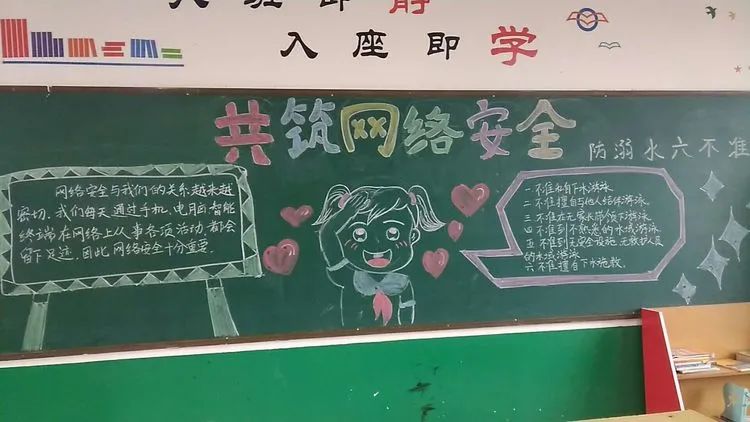 入班即静
入座即学
共筑网络安全
防溺水六不准
网络安全与我们的关系越来越
密切，我们每天通过手机、电脑智能
终端在网络上从事各项活动，都会
留下足迹，因此网络安全十分重要。
一.不准私自下水游泳.
二.不准擅自与他人结伴游泳.
三.不准在无家长带领下游泳.
四.不准到不熟悉的水域游泳.
五.不准到无安全设施、无救护人员
的水域游泳.
六.不准擅自下水施救.